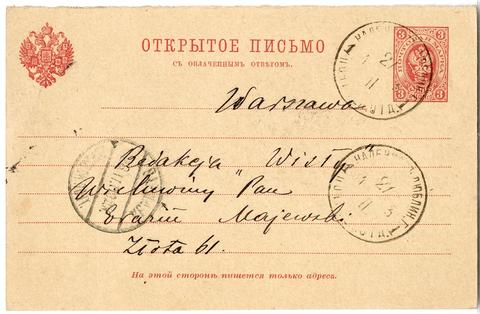 ОТКРЫТОЕ ПИСЬМО
СЪ ОПЛАЧЕННЫМЪ ОТВѢТОМЪ.
3 3
Warszawa
Redakcja "Wisły"
Wielmożny Pan
Erazm Majewski
Złota 61.
На этой сторонѣ пишется только адресъ.